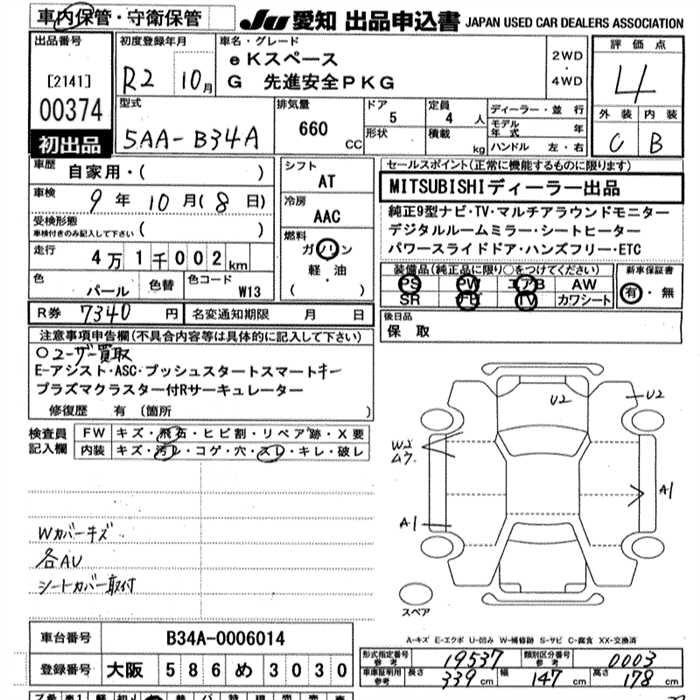 車内保管・守衛保管
JU 愛知 出品申込書 JAPAN USED CAR DEALERS ASSOCIATION
出品番号
[2141]
00374
初出品
初度登録年月
R2 10月
車名・グレード
eKスペース
G 先進安全PKG
2WD
・
4WD
評価点
4
外装 内装
C B
型式
5AA-B34A
排気量
660
CC
ドア
5
形状
定員
4 人
積載
kg
ディーラー・並行
モデル年式 年
ハンドル 左・右
車歴
自家用・( )
車検
9年10月(8日)
受検形態
車検付きのみ記入して下さい ( )
走行
4万1千002km
色
パール
色替
色コード
W13
シフト
AT
冷房
AAC
燃料
ガソリン
軽・油
( )
セールスポイント(正常に機能するものに限ります)
MITSUBISHIディーラー出品
純正9型ナビ・TV・マルチアラウンドモニター
デジタルルームミラー・シートヒーター
パワースライドドア・ハンズフリー・ETC
装備品(純正品に限り○をつけてください)
PS PW エアB AW
SR TV カワシート
新車保証書
有・無
R券 7340 円
名変通知期限 月 日
後日品
保 取
注意事項申告欄(不具合内容等は具体的に記入して下さい)
○ユーザー買取
E-アシスト・ASC・プッシュスタートスマートキー
プラズマクラスター付Rサーキュレーター
修復歴 有 (箇所 )
検査員
記入欄
FW キズ・飛石・ヒビ割・リペア跡・X要
内装 キズ・汚レ・コゲ・穴・スレ・キレ・破レ
Wカバーキズ
各AU
シートカバー取付
U2
U2
W2
ムラ
A1
A1
スペア
A-キズ E-エクボ U-凹み W-補修跡 S-サビ C-腐食 XX-交換済
車台番号
B34A-0006014
登録番号
大阪 586 め 3030
形式指定番号
参考
19537
類別区分番号
参考
0003
車庫証明用
参考
長さ 339 cm 幅 147 cm 高さ 178 cm